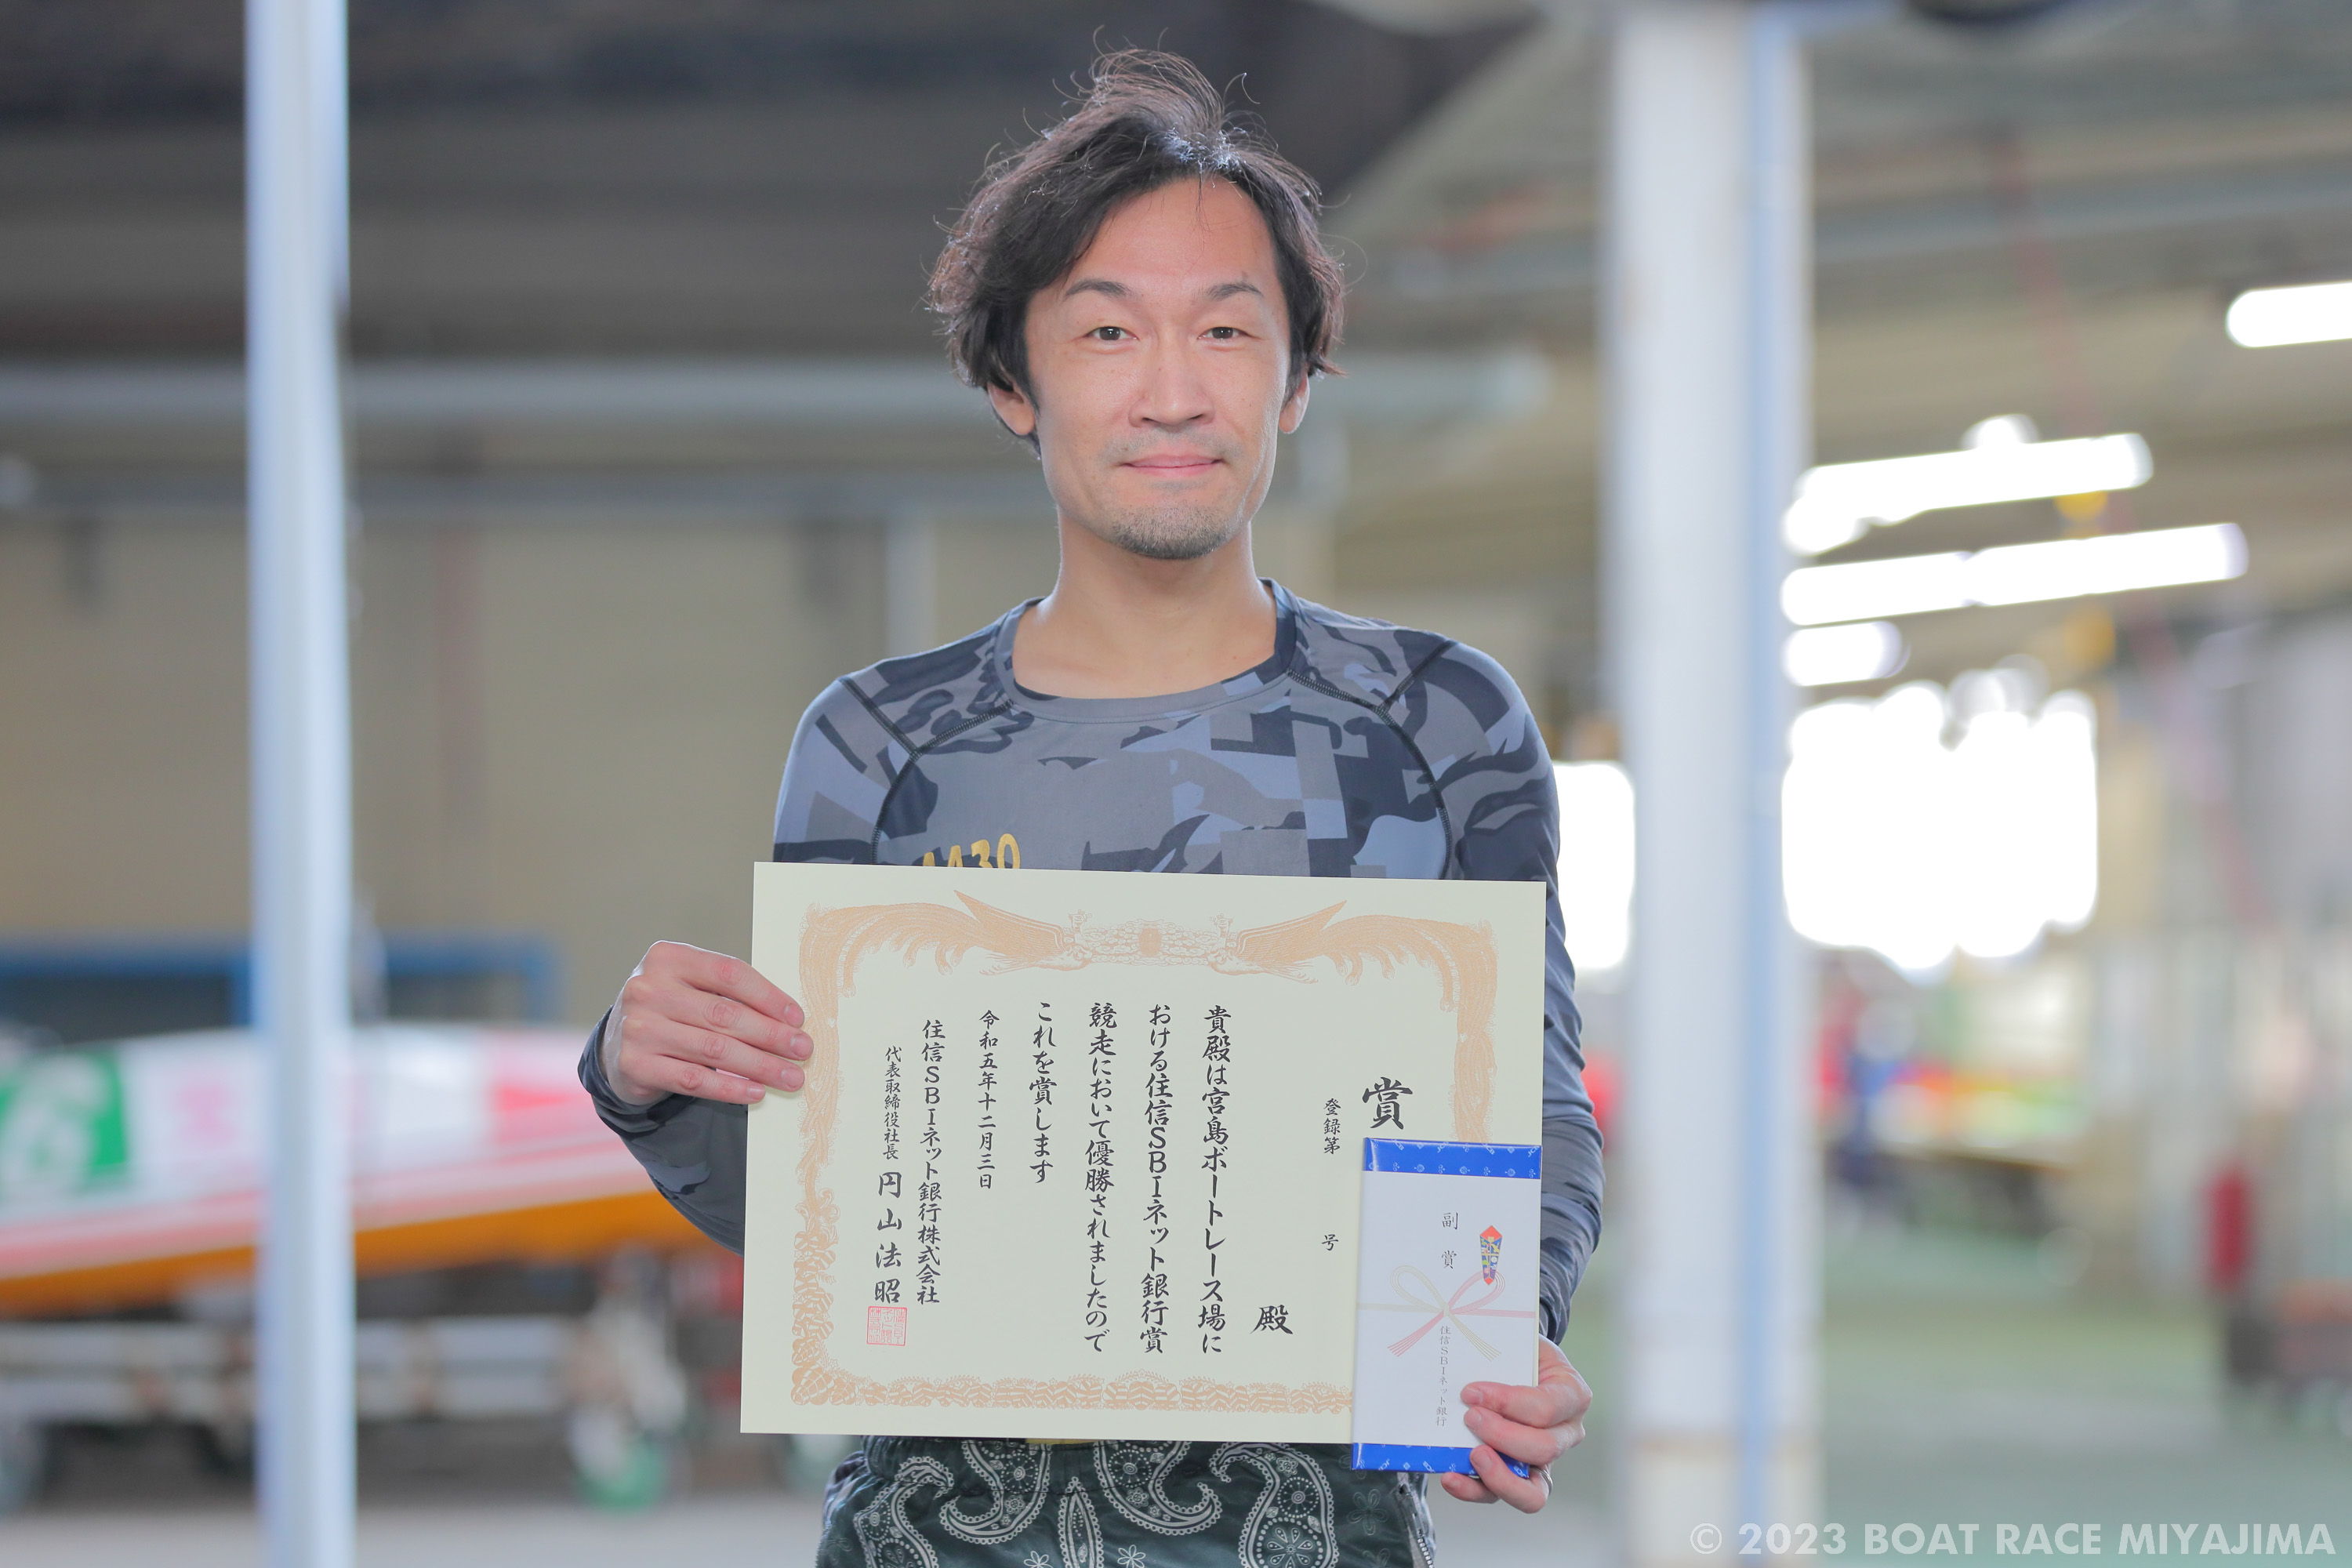 4430
賞
登録第 号
殿
貴殿は宮島ボートレース場に
おける住信SBIネット銀行賞
競走において優勝されましたので
これを賞します
令和五年十二月三日
住信SBIネット銀行株式会社
代表取締役社長 円山法昭
副賞
住信SBIネット銀行
6
© 2023 BOAT RACE MIYAJIMA